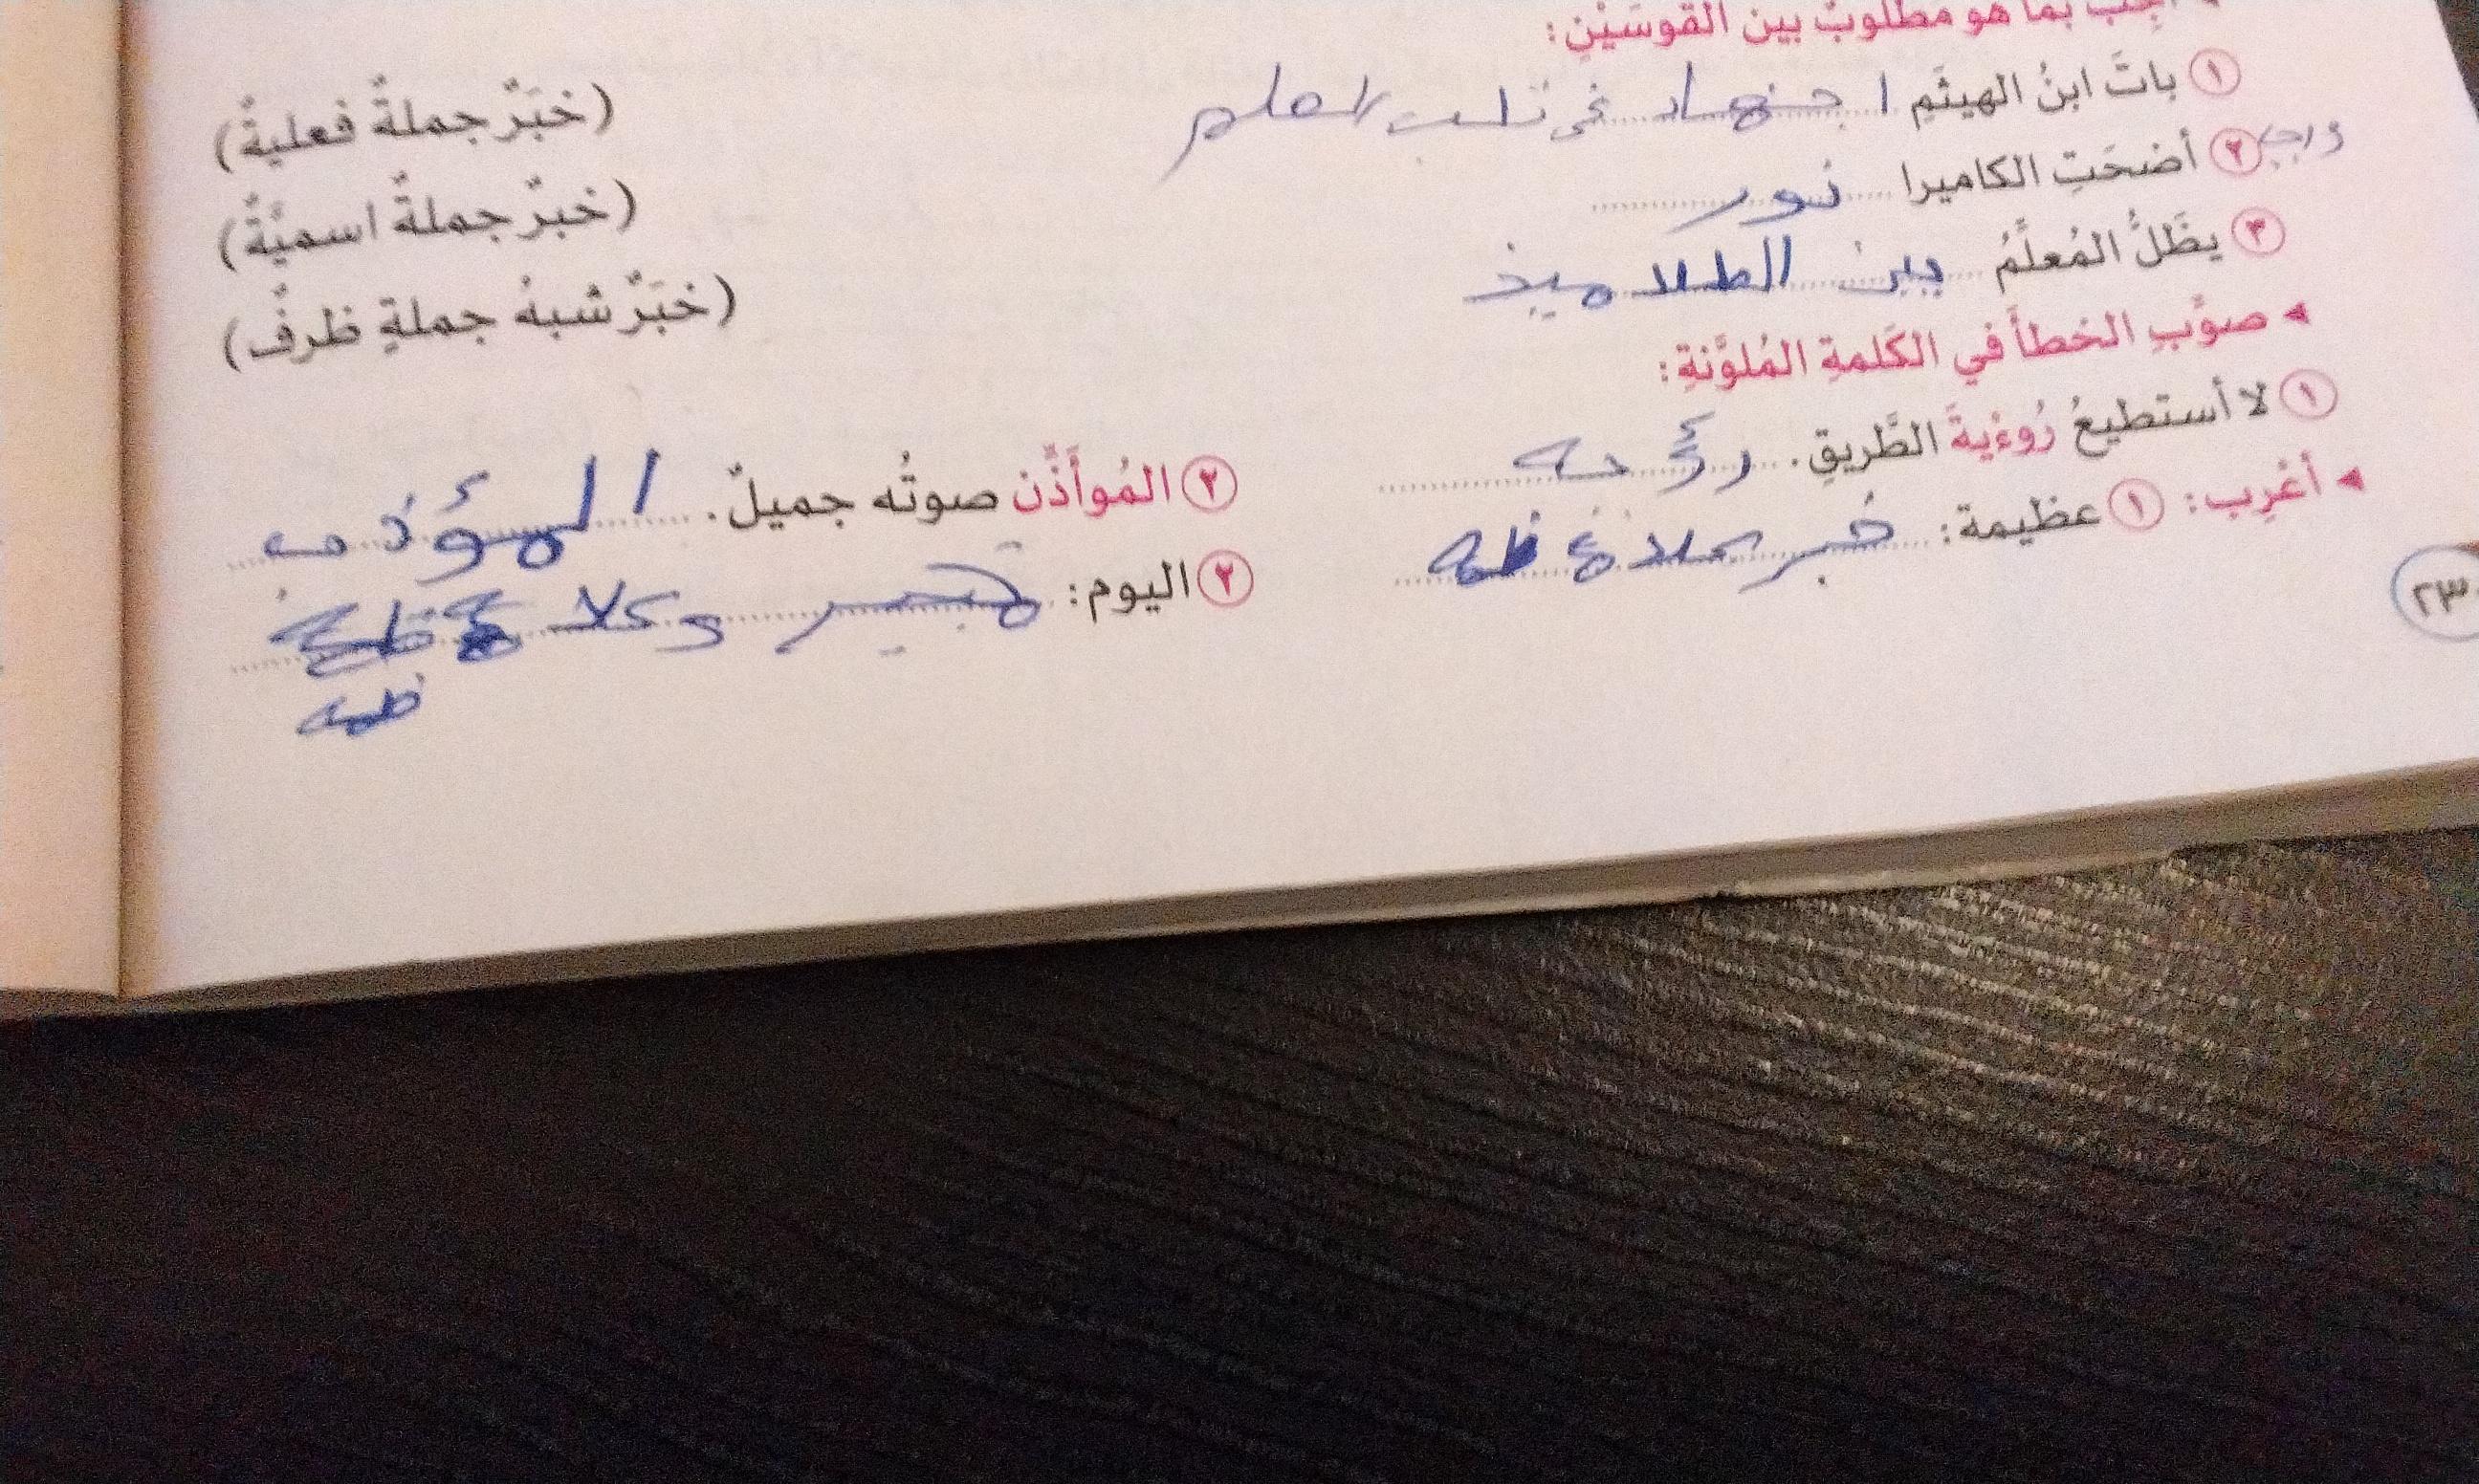 أجب بما هو مطلوبٌ بين القوسَيْنِ:
١ باتَ ابنُ الهيثَمِ اجتهاد في العلم (خبَرٌ جملةٌ فعليةٌ)
٢ أضحَتِ الكاميرا نور (خبرٌ جملةٌ اسميَّةٌ)
٣ يظَلُّ المُعلِّمُ بين الطلاميذ (خبَرٌ شبهُ جملةٍ ظرفٌ)
◂ صوِّبِ الخطأَ في الكَلمةِ المُلوَّنةِ:
١ لا أستطيعُ رُوءْيةَ الطَّريقِ. ٢ المُوأَذِّن صوتُه جميلٌ. المؤذن
◂ أعْرِب: ١ عظيمة: خبر ٢ اليوم:
ظمه
٢٣